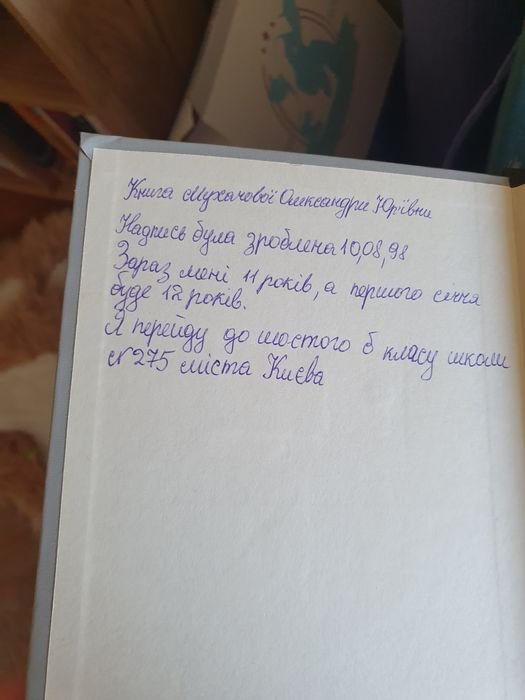 Книга Мухачової Олександри Юріївни
Надпись була зроблена 10,08,98
Зараз мені 11 років, а першого січня
буде 12 років.
Я перейду до шостого Б класу школи
№275 міста Києва